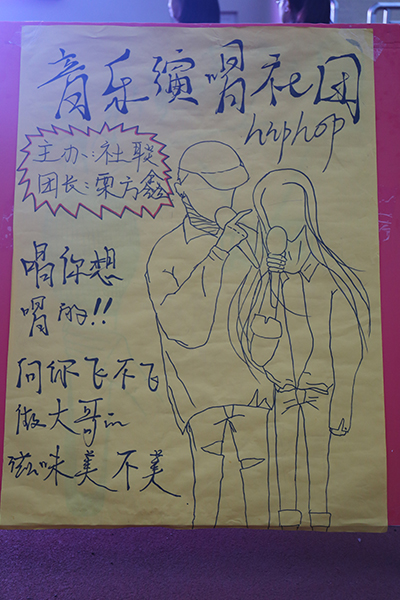 音乐演唱社团
hiphop
主办:社联
团长:栗方鑫
唱你想
唱的!!
问你飞不飞
做大哥的
滋味美不美